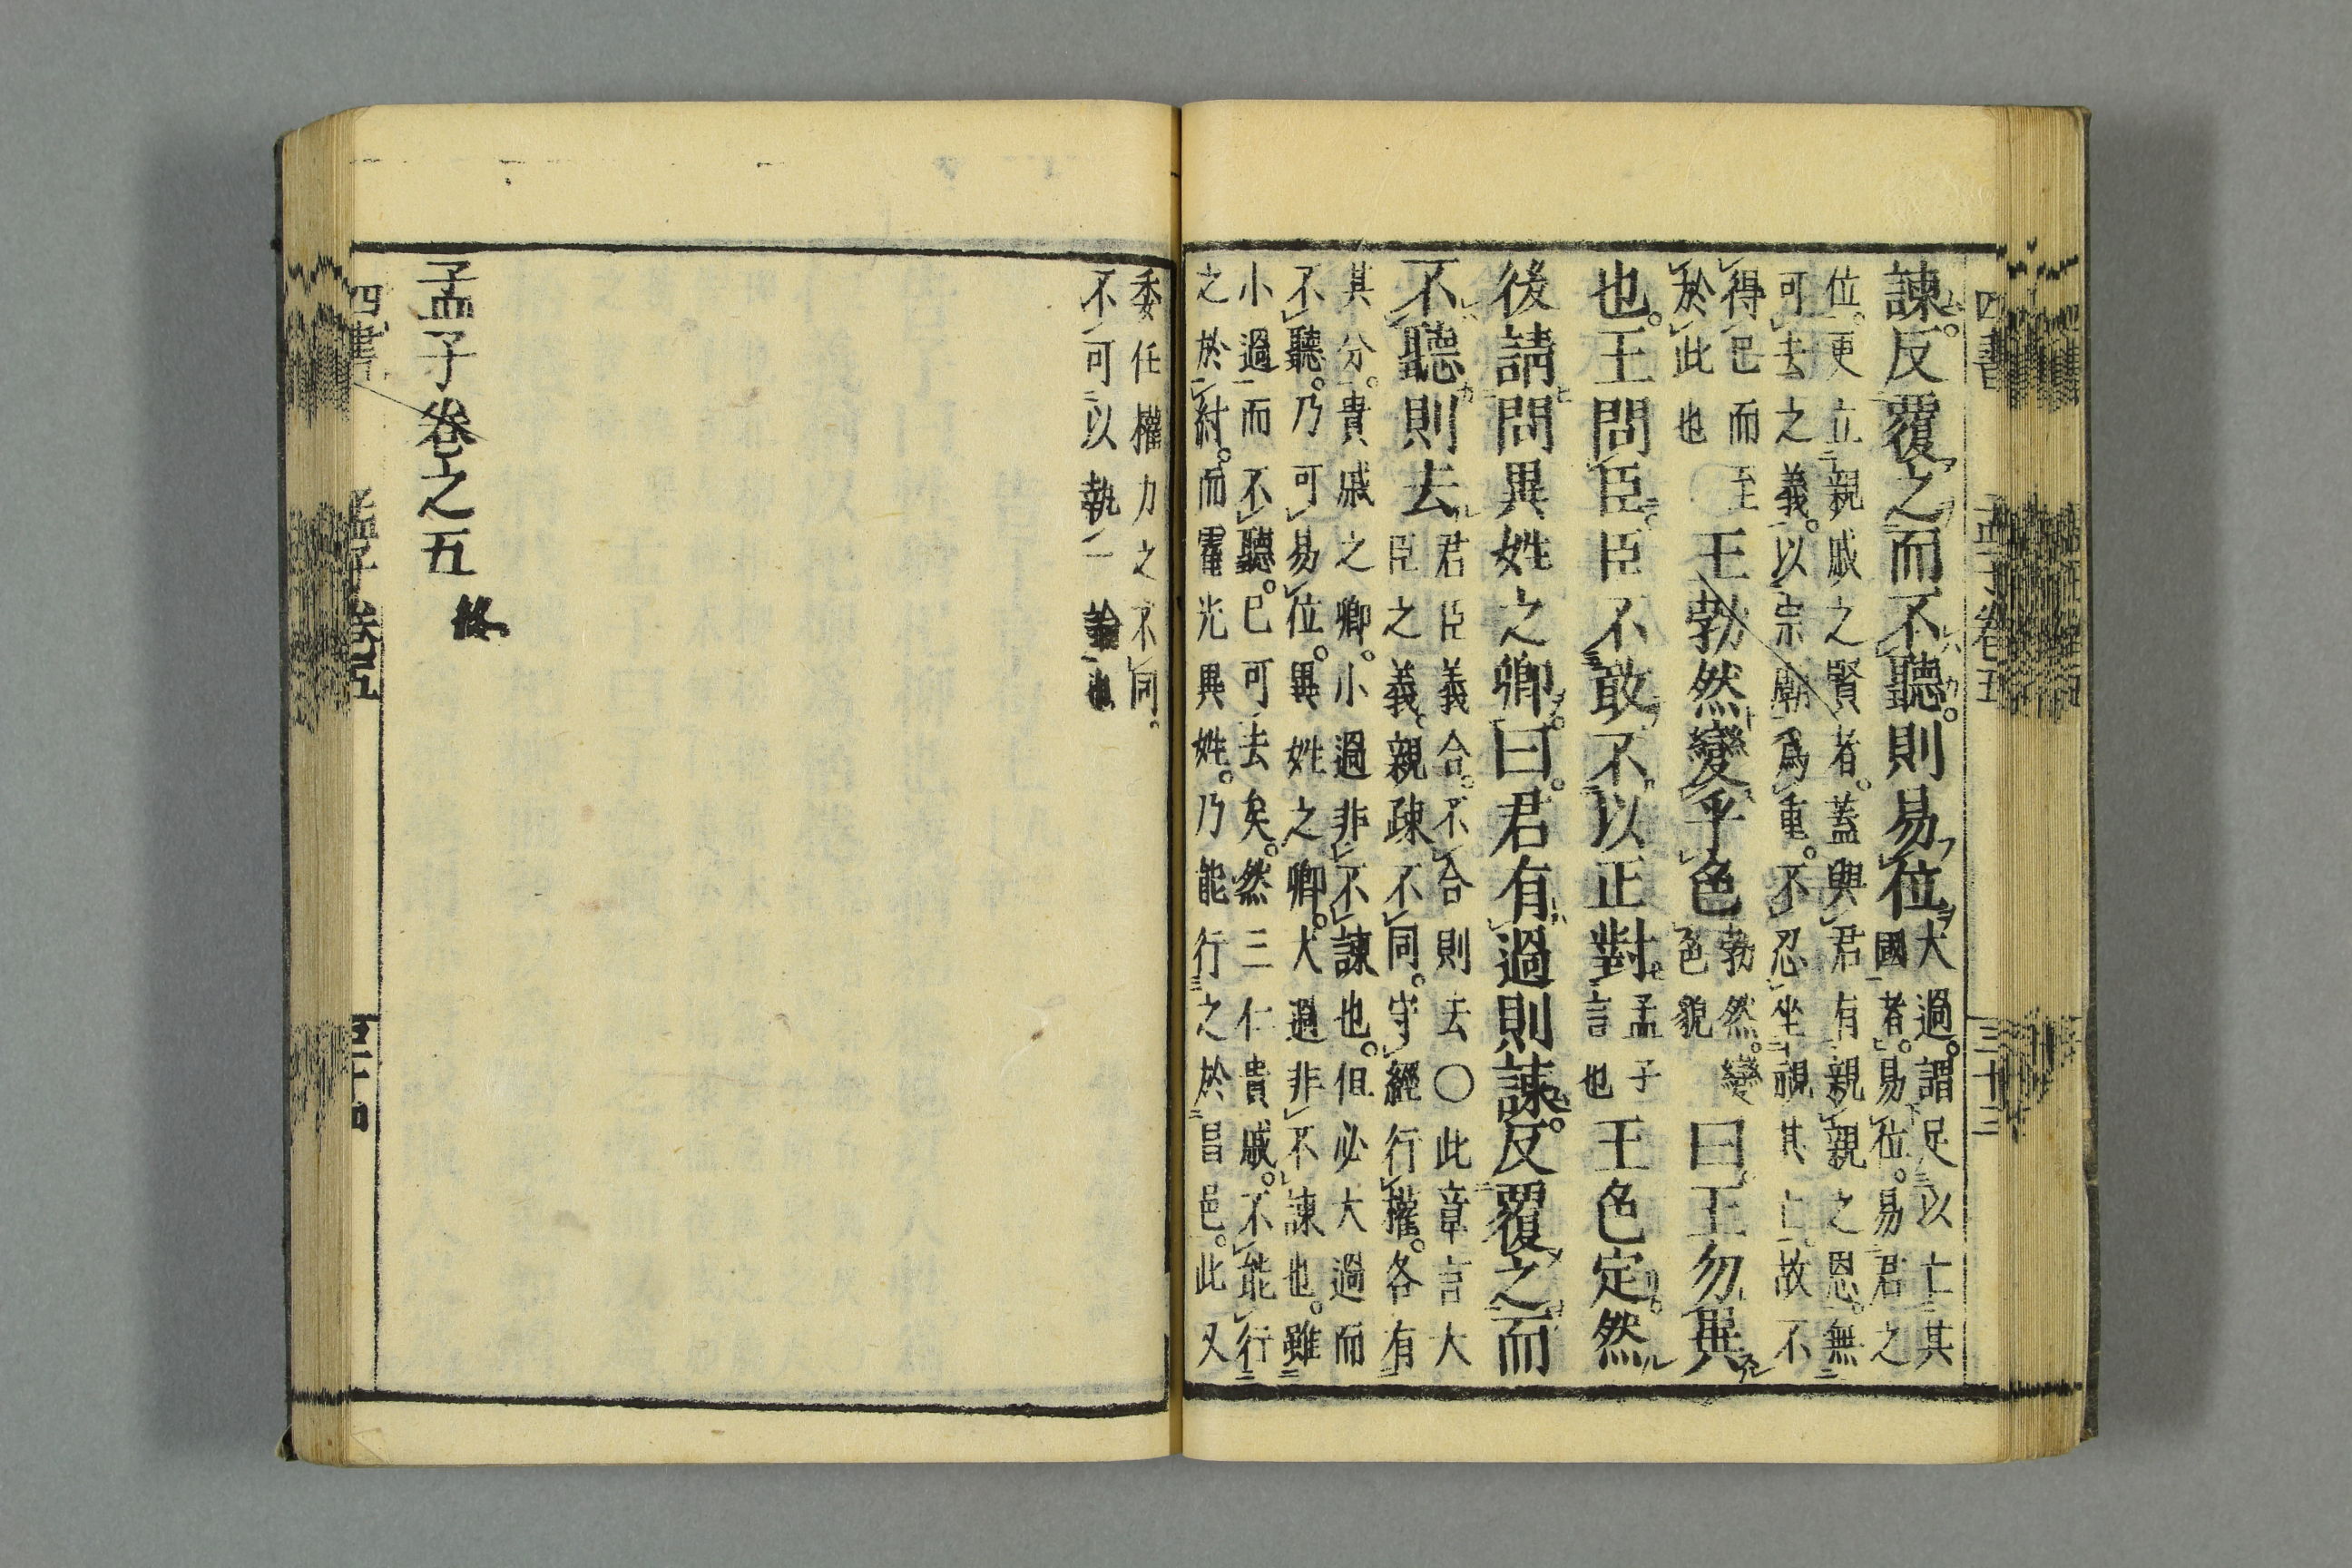 四書 孟子卷五 三十三
諫。反覆之而不聽。則易位。大過。謂足以亡其
國者。易位。易君之
位。更立親戚之賢者。蓋與君有親親之恩。無
可去之義。以宗廟爲重。不忍坐視其亡。故不
得已而至
於此也
王勃然變乎色
勃然。變
色貌
曰。王勿異
也。王問臣。臣不敢不以正對。
孟子
言也
王色定。然
後請問異姓之卿。曰。君有過則諫。反覆之而
不聽則去
君臣義合。不合則去○此章言大
臣之義。親疎不同。守經行權。各有
其分。貴戚之卿。小過非不諫也。但必大過而
不聽。乃可易位。異姓之卿。大過非不諫也。雖
小過而不聽。已可去矣。然三仁貴戚。不能行
之於紂。而霍光異姓。乃能行之於昌邑。此又
委任權力之不同。
不可以執一論也
孟子卷之五 終
四書 孟子卷五 三十四